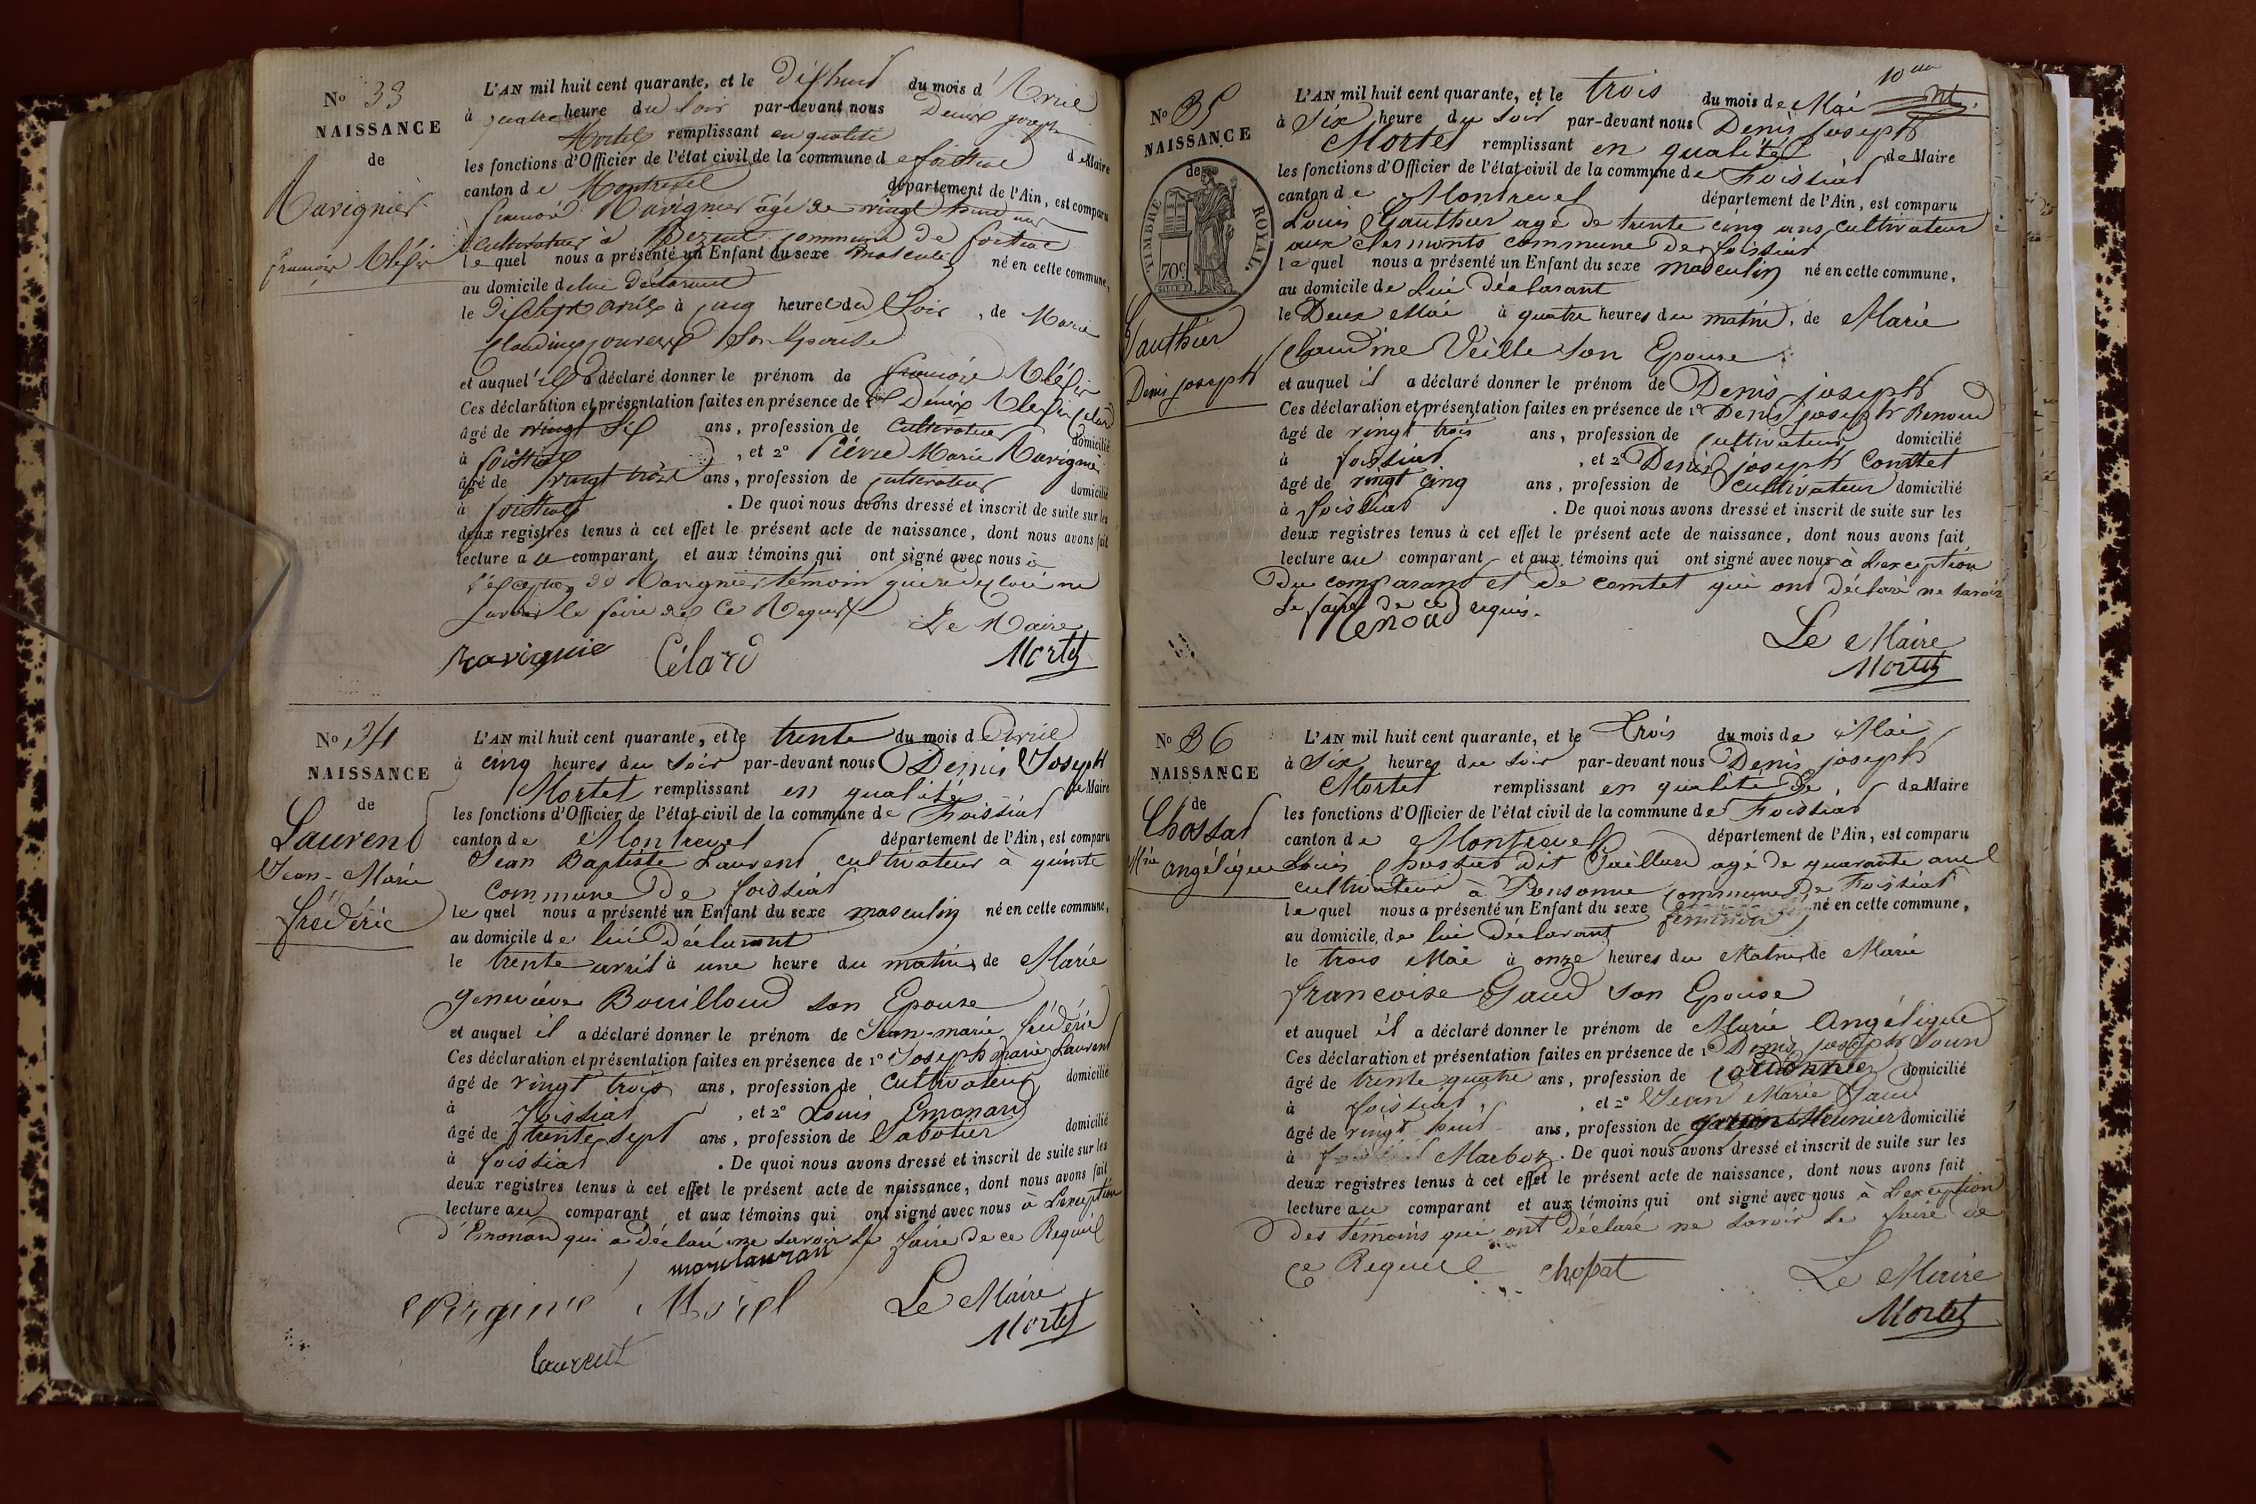 No 33
NAISSANCE
de
Ravignier
françois Aléxis
L'AN mil huit cent quarante, et le dixhuit du mois d'Avril
à quatre heure du soir par-devant nous Denis joseph
Mortel remplissant en qualité de Maire
les fonctions d'Officier de l'état civil de la commune de foissiat
canton de Montrevel département de l'Ain, est comparu
françois Ravignier âgé de vingt
cultivateur à commune de foissiat
lequel nous a présenté un Enfant du sexe masculin né en cette commune,
au domicile de lui déclarant
le dixsept avril à cinq heure du soir, de Marie
Claudine son épouse
et auquel il a déclaré donner le prénom de françois Aléxis
Ces déclaration et présentation faites en présence de 1° Denis Alexis Célard
âgé de vingt six ans, profession de cultivateur domicilié
à foissiat, et 2° Pierre Marie Ravignier
âgé de vingt trois ans, profession de cultivateur domicilié
à foissiat. De quoi nous avons dressé et inscrit de suite sur les
deux registres tenus à cet effet le présent acte de naissance, dont nous avons fait
lecture au comparant et aux témoins qui ont signé avec nous à
l'exception de Ravignier témoin qui a déclaré ne
savoir le faire de ce Requis
Le Maire
ravignie Célard Mortel
No 34
NAISSANCE
de
Laurend
Jean-Marie
frédéric
L'AN mil huit cent quarante, et le trente du mois d'Avril
à cinq heures du soir par-devant nous Denis Joseph
Mortel remplissant en qualité de Maire
les fonctions d'Officier de l'état civil de la commune de Foissiat
canton de Montrevel département de l'Ain, est comparu
Jean Baptiste Laurend cultivateur à
commune de foissiat
lequel nous a présenté un Enfant du sexe masculin né en cette commune,
au domicile de lui déclarant
le trente avril à une heure du matin, de Marie
geneviève Bouilloud son Epouse
et auquel il a déclaré donner le prénom de Jean-marie frédéric
Ces déclaration et présentation faites en présence de 1° Joseph marie Laurend
âgé de vingt trois ans, profession de cultivateur domicilié
à foissiat, et 2° Louis Emonard
âgé de trente sept ans, profession de Sabotier domicilié
à foissiat. De quoi nous avons dressé et inscrit de suite sur les
deux registres tenus à cet effet le présent acte de naissance, dont nous avons fait
lecture au comparant et aux témoins qui ont signé avec nous à L'exception
d'Emonard qui a déclaré ne savoir le faire de ce Requis
Le Maire
Mortel
laurent
10
No 35
NAISSANCE
de
TIMBRE ROYAL
70c
Gauthier
Denis joseph
L'AN mil huit cent quarante, et le trois du mois de Mai
à Six heure du soir par-devant nous Denis joseph
Mortel remplissant en qualité de Maire
les fonctions d'Officier de l'état civil de la commune de Foissiat
canton de Montrevel département de l'Ain, est comparu
Louis Gauthier agé de trente cinq ans cultivateur
aux Clermonts commune de foissiat
lequel nous a présenté un Enfant du sexe masculin né en cette commune,
au domicile de Lui déclarant
le Deux Mai à quatre heures du matin, de Marie
Claudine Veille son Epouse
et auquel il a déclaré donner le prénom de Denis joseph
Ces déclaration et présentation faites en présence de 1° Denis joseph Renoud
âgé de vingt trois ans, profession de cultivateur domicilié
à foissiat, et 2° Denis joseph Comtet
âgé de vingt cinq ans, profession de cultivateur domicilié
à foissiat. De quoi nous avons dressé et inscrit de suite sur les
deux registres tenus à cet effet le présent acte de naissance, dont nous avons fait
lecture au comparant et aux témoins qui ont signé avec nous à L'exception
du comparant et de comtet qui ont déclaré ne savoir
le faire de ce requis.
Renoud
Le Maire
Mortel
No 36
NAISSANCE
de
Chossat
Mrie angélique
L'AN mil huit cent quarante, et le trois du mois de Mai
à Six heures du soir par-devant nous Denis joseph
Mortel remplissant en qualité de de Maire
les fonctions d'Officier de l'état civil de la commune de Foissiat
canton de Montrevel département de l'Ain, est comparu
Louis Chossat dit Gaillard agé de quarante ans
cultivateur à commune de Foissiat
lequel nous a présenté un Enfant du sexe féminin né en cette commune,
au domicile de lui déclarant
le trois Mai à onze heures du Matin, de Marie
françoise Gaud son Epouse
et auquel il a déclaré donner le prénom de Marie Angélique
Ces déclaration et présentation faites en présence de 1° Denis joseph
âgé de trente quatre ans, profession de cordonnier domicilié
à foissiat, et 2° Jean Marie Gaud
âgé de vingt huit ans, profession de garçon Meunier domicilié
à Marboz. De quoi nous avons dressé et inscrit de suite sur les
deux registres tenus à cet effet le présent acte de naissance, dont nous avons fait
lecture au comparant et aux témoins qui ont signé avec nous à L'exception
Des témoins qui ont déclaré ne savoir le faire de
ce Requis chossat
Le Maire
Mortel